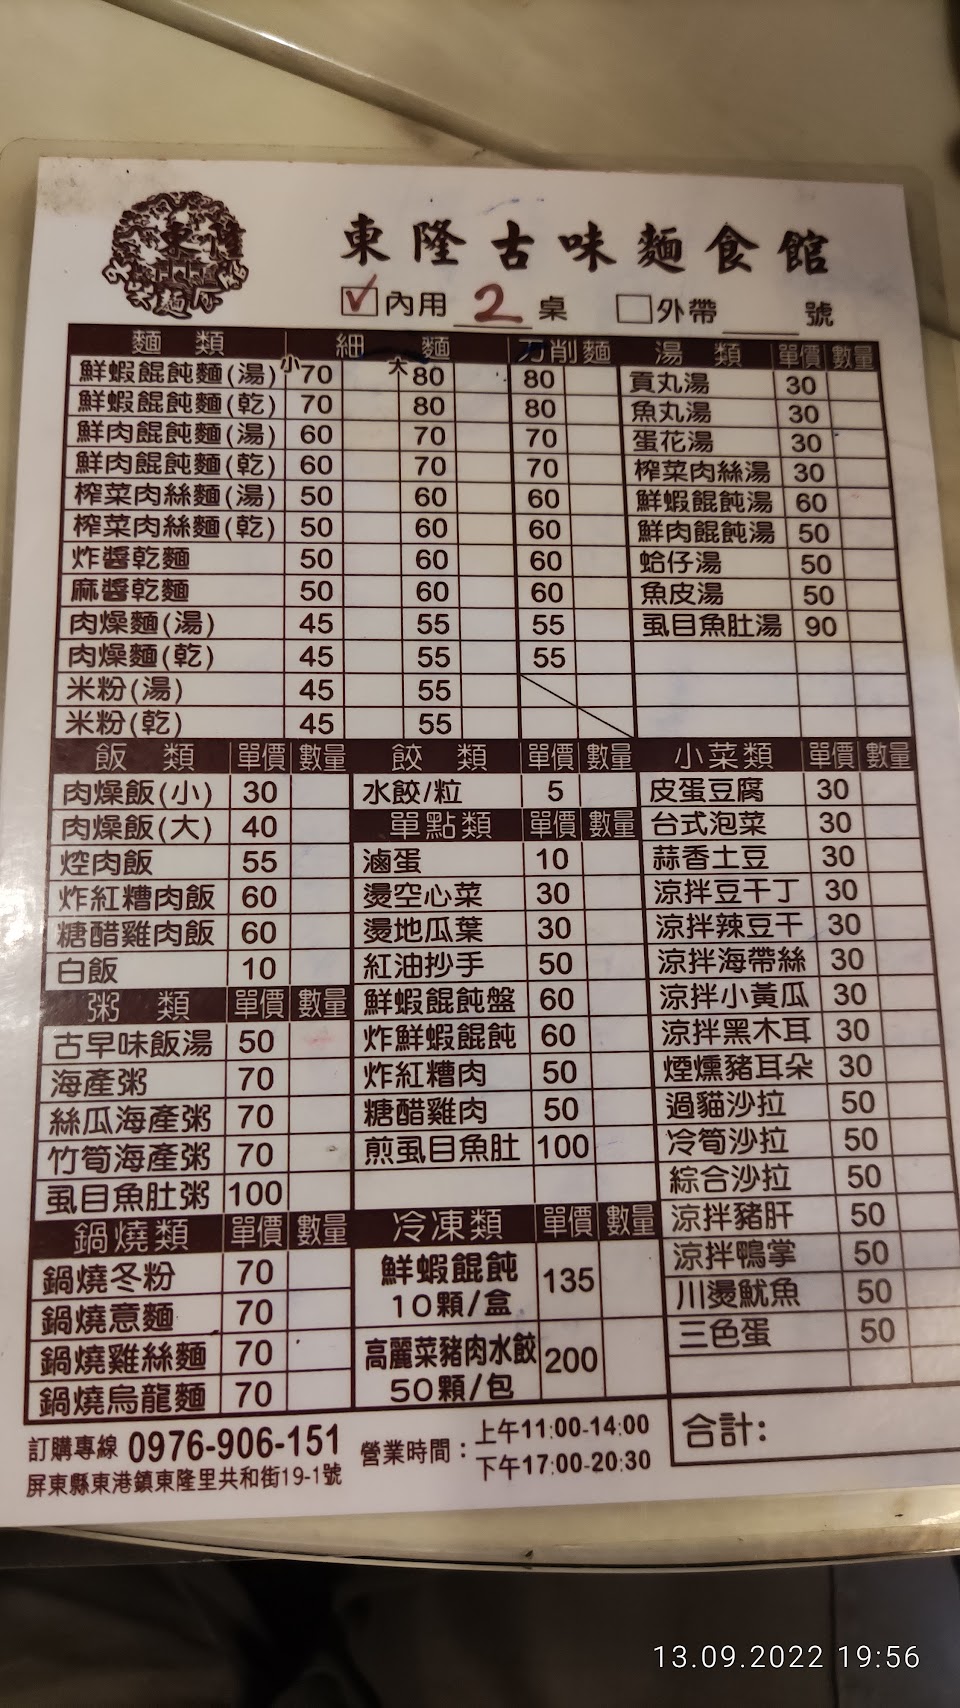 東隆
麵食
東隆古味麵食館
☑內用 2 桌 ☐外帶 ____ 號
麵 類 細 麵 刀削麵 湯 類 單價 數量
鮮蝦餛飩麵(湯) 小 70 大 80 80 貢丸湯 30
鮮蝦餛飩麵(乾) 70 80 80 魚丸湯 30
鮮肉餛飩麵(湯) 60 70 70 蛋花湯 30
鮮肉餛飩麵(乾) 60 70 70 榨菜肉絲湯 30
榨菜肉絲麵(湯) 50 60 60 鮮蝦餛飩湯 60
榨菜肉絲麵(乾) 50 60 60 鮮肉餛飩湯 50
炸醬乾麵 50 60 60 蛤仔湯 50
麻醬乾麵 50 60 60 魚皮湯 50
肉燥麵(湯) 45 55 55 虱目魚肚湯 90
肉燥麵(乾) 45 55 55
米粉(湯) 45 55
米粉(乾) 45 55
飯 類 單價 數量
肉燥飯(小) 30
肉燥飯(大) 40
焢肉飯 55
炸紅糟肉飯 60
糖醋雞肉飯 60
白飯 10
粥 類 單價 數量
古早味飯湯 50
海產粥 70
絲瓜海產粥 70
竹筍海產粥 70
虱目魚肚粥 100
鍋燒類 單價 數量
鍋燒冬粉 70
鍋燒意麵 70
鍋燒雞絲麵 70
鍋燒烏龍麵 70
餃 類 單價 數量
水餃/粒 5
單點類 單價 數量
滷蛋 10
燙空心菜 30
燙地瓜葉 30
紅油抄手 50
鮮蝦餛飩盤 60
炸鮮蝦餛飩 60
炸紅糟肉 50
糖醋雞肉 50
煎虱目魚肚 100
冷凍類 單價 數量
鮮蝦餛飩 135
10顆/盒
高麗菜豬肉水餃 200
50顆/包
小菜類 單價 數量
皮蛋豆腐 30
台式泡菜 30
蒜香土豆 30
涼拌豆干丁 30
涼拌辣豆干 30
涼拌海帶絲 30
涼拌小黃瓜 30
涼拌黑木耳 30
煙燻豬耳朵 30
過貓沙拉 50
冷筍沙拉 50
綜合沙拉 50
涼拌豬肝 50
涼拌鴨掌 50
川燙魷魚 50
三色蛋 50
合計:
訂購專線 0976-906-151
屏東縣東港鎮東隆里共和街19-1號
營業時間：上午11:00-14:00
下午17:00-20:30
13.09.2022 19:56